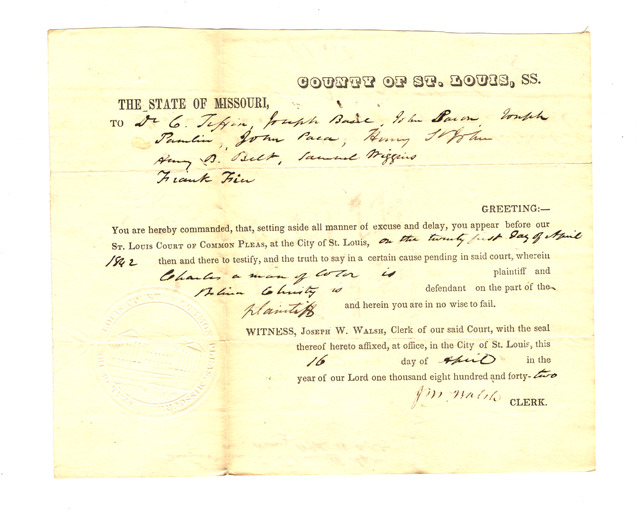 COUNTY OF ST. LOUIS, SS.
THE STATE OF MISSOURI,
TO Dr C. Tiffin, Joseph Basie, John Bacon, Joseph
Paulin, John Paca, Henry St John
Henry B. Belt, Samuel Wiggins
Frank
GREETING:—
You are hereby commanded, that, setting aside all manner of excuse and delay, you appear before our
ST. LOUIS COURT OF COMMON PLEAS, at the City of St. Louis, on the twenty first day of April
1842 then and there to testify, and the truth to say in a certain cause pending in said court, wherein
Charles a man of color is plaintiff and
Christy is defendant on the part of the
plaintiff and herein you are in no wise to fail.
WITNESS, JOSEPH W. WALSH, Clerk of our said Court, with the seal
thereof hereto affixed, at office, in the City of St. Louis, this
16 day of April in the
year of our Lord one thousand eight hundred and forty-two
J W Walsh CLERK.